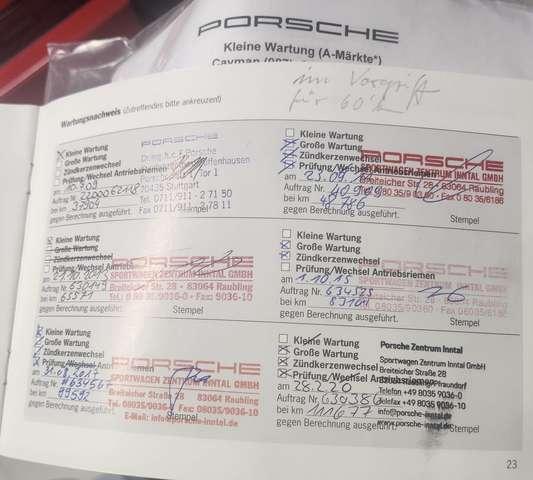 PORSCHE
Kleine Wartung (A-Märkte*)
im Vorgriff
für 60'
Wartungsnachweis (Zutreffendes bitte ankreuzen!)
Kleine Wartung
Große Wartung
Zündkerzenwechsel
Prüfung/Wechsel Antriebsriemen
am 10.9.09
Auftrag Nr. 2200062118
bei km 37904
gegen Berechnung ausgeführt.
PORSCHE
Dr.Ing.h.c.F.Porsche
Tor 1
70435 Stuttgart
Tel. 0711/911 - 2 71 50
Fax 0711/911 - 2 78 11
Stempel
Kleine Wartung
Große Wartung
Zündkerzenwechsel
Prüfung/Wechsel Antriebsriemen
am 23.09.11
Auftrag Nr. 40909
bei km 48786
gegen Berechnung ausgeführt.
PORSCHE
SPORTWAGEN ZENTRUM INNTAL
Breiteicher Str. 28 · 83064 Raubling
Stempel
Kleine Wartung
Große Wartung
Zündkerzenwechsel
Prüfung/Wechsel Antriebsriemen
am
Auftrag Nr. 630149
bei km 65571
gegen Berechnung ausgeführt.
PORSCHE
SPORTWAGEN ZENTRUM INNTAL GMBH
Breiteicher Str. 28 - 83064 Raubling
Tel.: 0 80 35/9036-0 · Fax: 9036-10
Stempel
Kleine Wartung
Große Wartung
Zündkerzenwechsel
Prüfung/Wechsel Antriebsriemen
am 1.10.15
Auftrag Nr. 634525
bei km 83101
gegen Berechnung ausgeführt.
SPORTWAGEN ZENTRUM INNTAL GMBH
Breiteicher Str. 28 · 83064 Raubling
Stempel
Kleine Wartung
Große Wartung
Zündkerzenwechsel
Prüfung/Wechsel Antriebsriemen
am 31.08.2017
Auftrag Nr. #634567
bei km 99592
gegen Berechnung ausgeführt.
PORSCHE
SPORTWAGEN ZENTRUM INNTAL GMBH
Breiteicher Str. 28 83064 Raubling
Tel. 08035/9036- Fax: 08035/9036-10
E-Mail: info@porsche-inntal.de
Stempel
Kleine Wartung
Große Wartung
Zündkerzenwechsel
Prüfung/Wechsel Antriebsriemen
am 28.2.20
Auftrag Nr. 630386
bei km 111677
gegen Berechnung ausgeführt.
Porsche Zentrum Inntal
Sportwagen Zentrum Inntal GmbH
Pfraundorf
Telefon +49 8035 9036-0
Telefax +49 8035 9036-10
info@porsche-inntal.de
www.porsche-inntal.de
Stempel
23